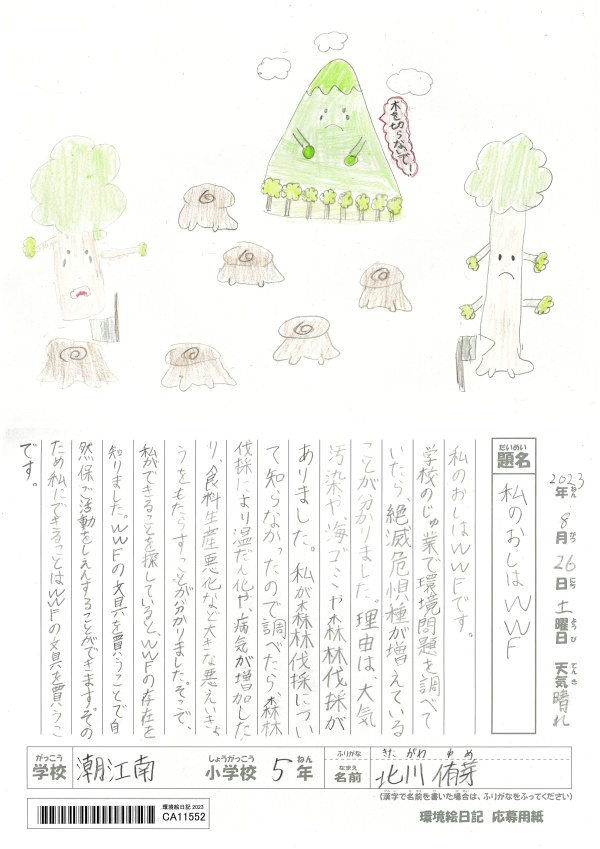 木を切らないで!
2023年8月26日土曜日 天気晴れ
ねん がつ にち ようび てんき
だいめい
題名
私のおしはWWF
私のおしはWWFです。
学校のじゅ業で環境問題を調べて
いたら、絶滅危惧種が増えている
ことが分かりました。理由は、大気
汚染や海ゴミや森林伐採が
ありました。私が森林伐採につい
て知らなかったので調べたら、森林
伐採により温だん化や、病気が増加した
り、食料生産悪化など大きな悪えいきょ
うをもたらすことが分かりました。そこで、
私ができることを探していると、WWFの存在を
知りました。WWFの文具を買うことで自
然保ご活動をしえんすることができます。その
ため私にできることはWWFの文具を買うこと
です。
がっこう しょうがっこう ねん
学校 潮江南 小学校 5年
ふりがな きたがわ ゆめ
なまえ
名前 北川 侑芽
(漢字で名前を書いた場合は、ふりがなをふってください)
環境絵日記 2023
CA11552
環境絵日記 応募用紙